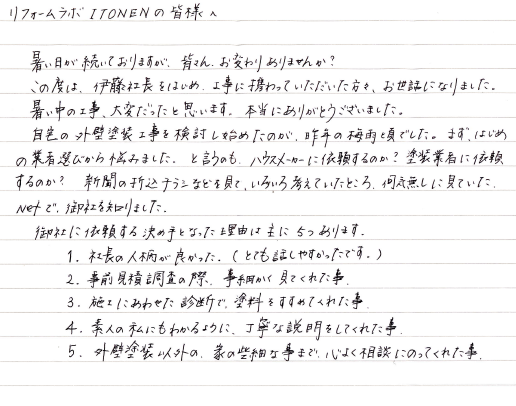 リフォームラボ ITONENの皆様へ
暑い日が続いておりますが、皆さん、お変わりありませんか？
この度は、伊藤社長をはじめ、工事に携わっていただいた方々、お世話になりました。
暑い中の工事、大変だったと思います。本当にありがとうございました。
自宅の外壁塗装工事を検討し始めたのが、昨年の梅雨頃でした。まず、はじめ
の業者選びから悩みました。と言うのも、ハウスメーカーに依頼するのか？塗装業者に依頼
するのか？ 新聞の折込チラシなどを見て、いろいろ考えていたところ、何気無しに見ていた
netで、御社を知りました。
御社に依頼する決め手となった理由は主に5つあります。
1. 社長の人柄が良かった。（とても話しやすかったです。）
2. 事前見積調査の際、事細かく見てくれた事。
3. 施工にあわせた診断で、塗料をすすめてくれた事。
4. 素人の私にもわかるように、丁寧な説明をしてくれた事。
5. 外壁塗装以外の、家の些細な事まで、心よく相談にのってくれた事。